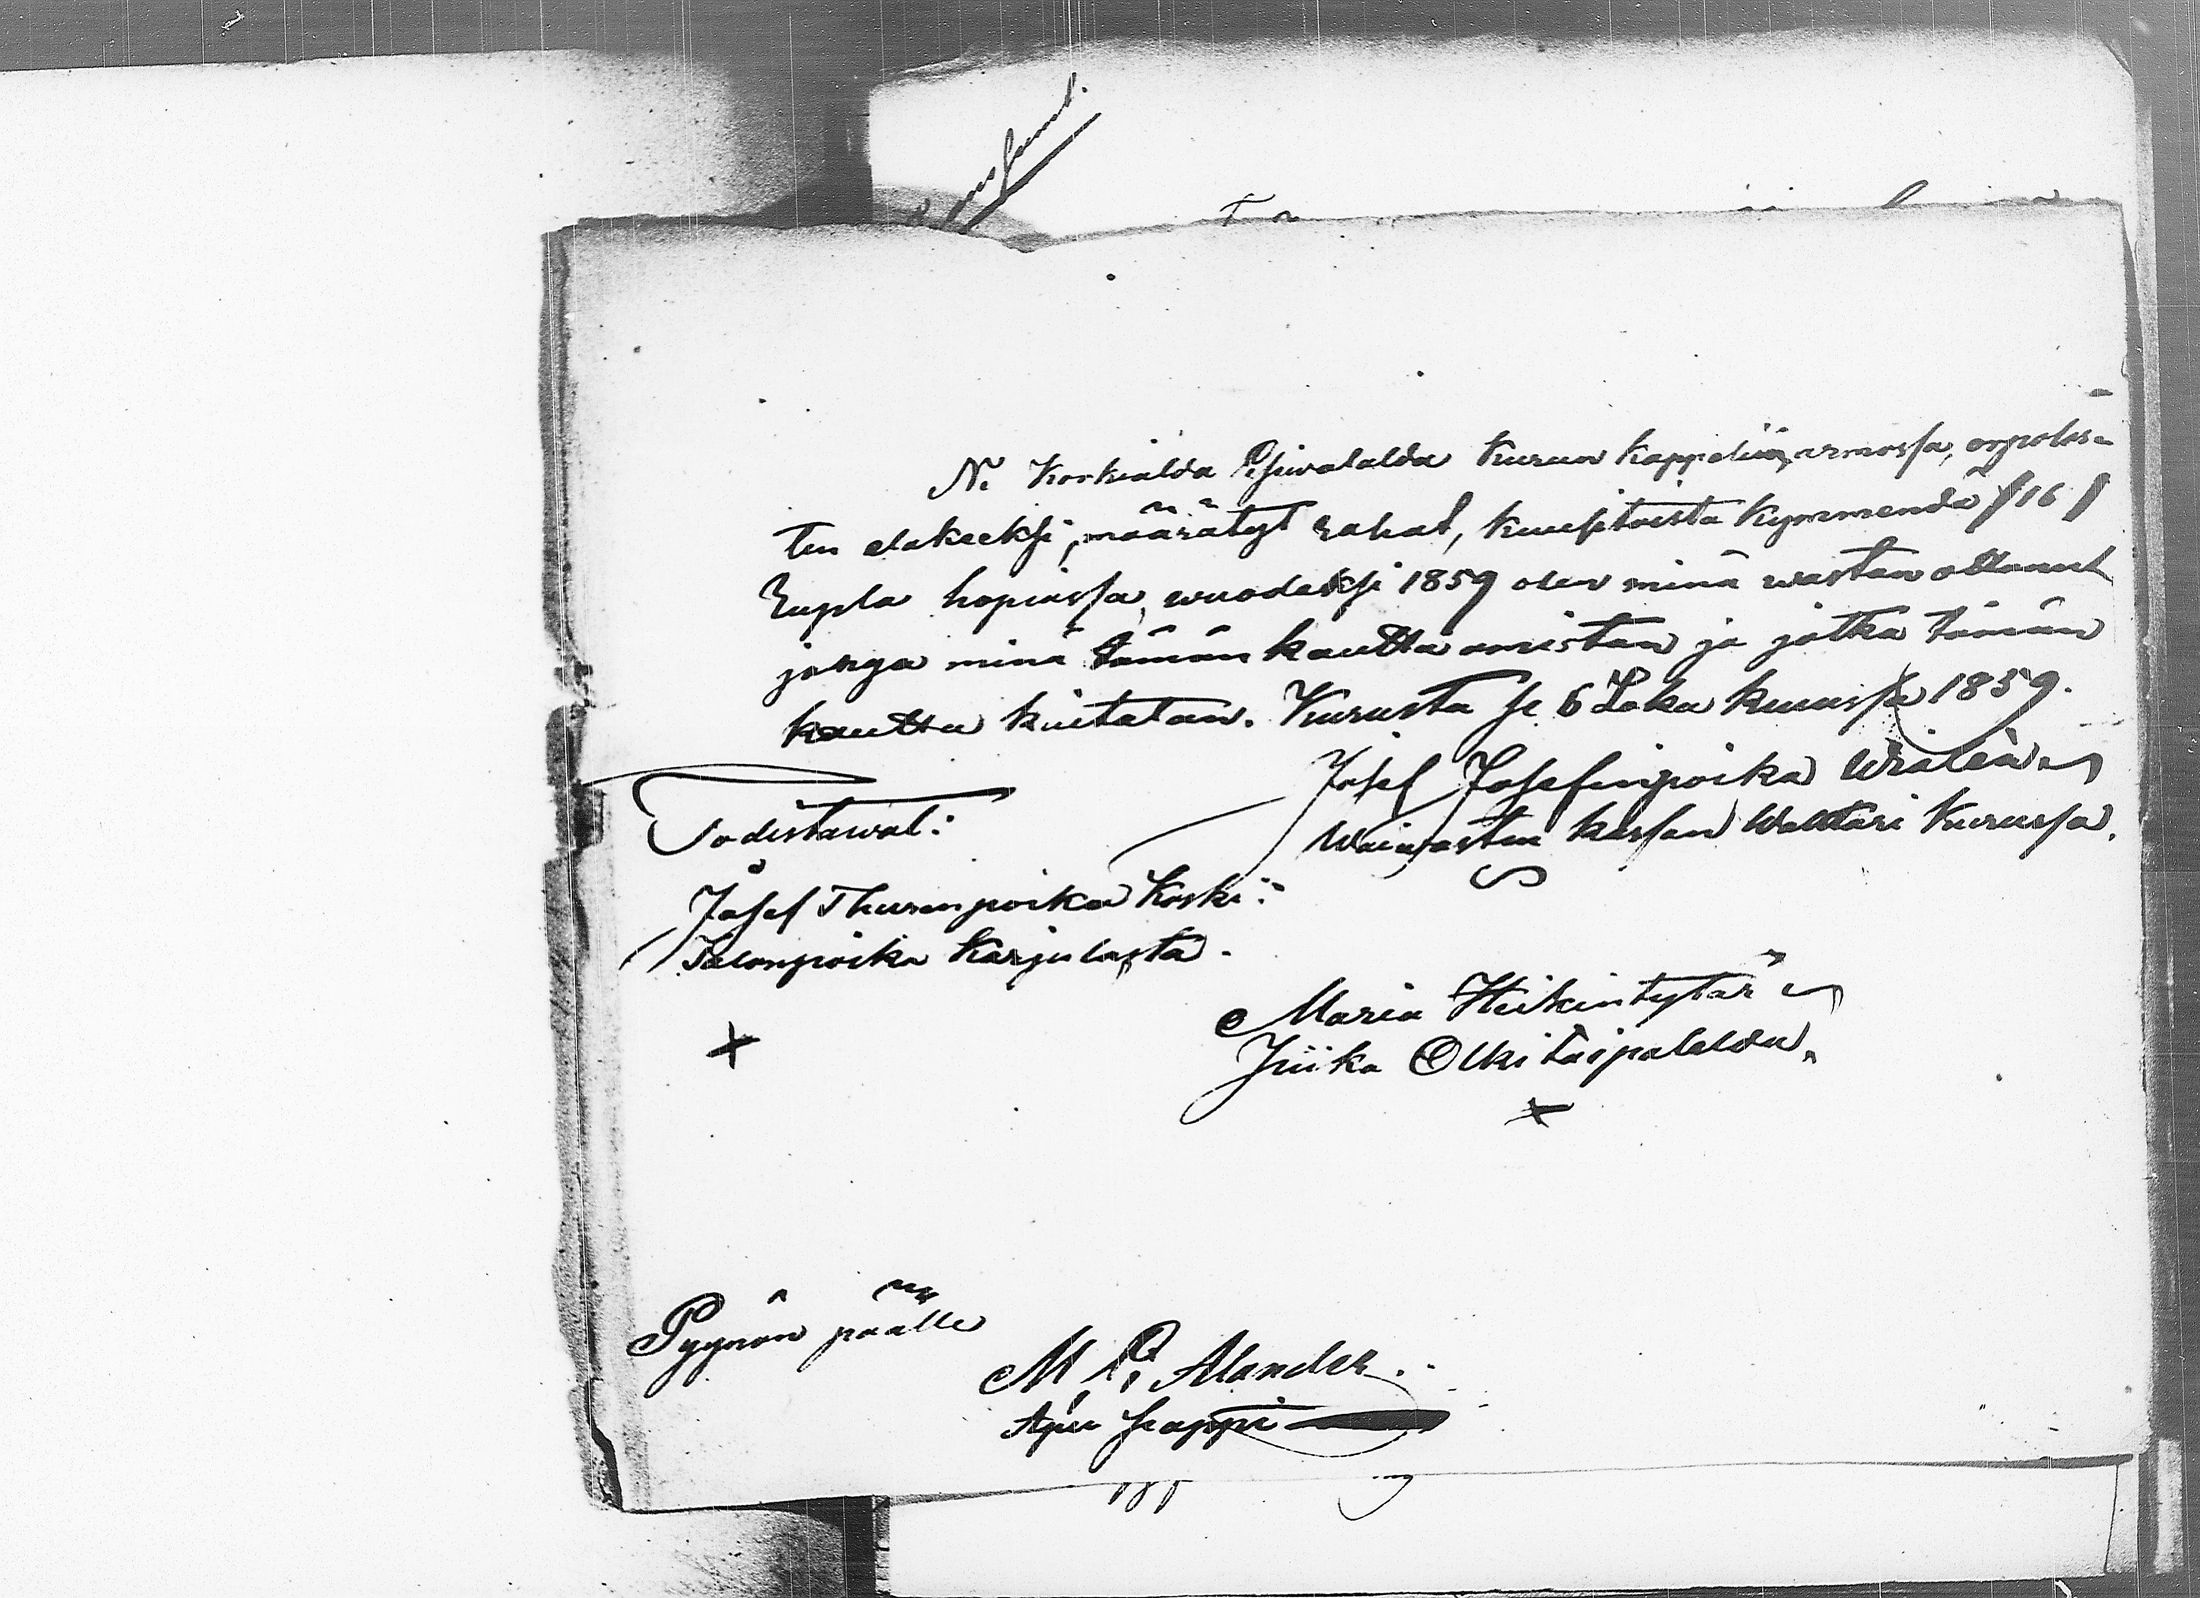 N. Korkialda Esiwalalda Kurun kappelin armossa, orpolas-
ten elakeeksi, määrätyt rahat, kuusitoista kymmendä /16/
Rupla hopiassa wuodeksi 1859 olen minä wastan ottanut
jonga minä tämän kautta omistan ja jotka tämän
kautta kuitatan. Kurusta se 6 Loka kuussa 1859.
Josef Josefinpoika
Waiwasten kassan Kurussa.
Todistawat:
Josef Thurenpoika Koski:
Talonpoika Karjulasta.
Maria Heikintytär
Jtiika Olkitaipalelda.
Pyynön päälle
M Alander.
Apu pappi